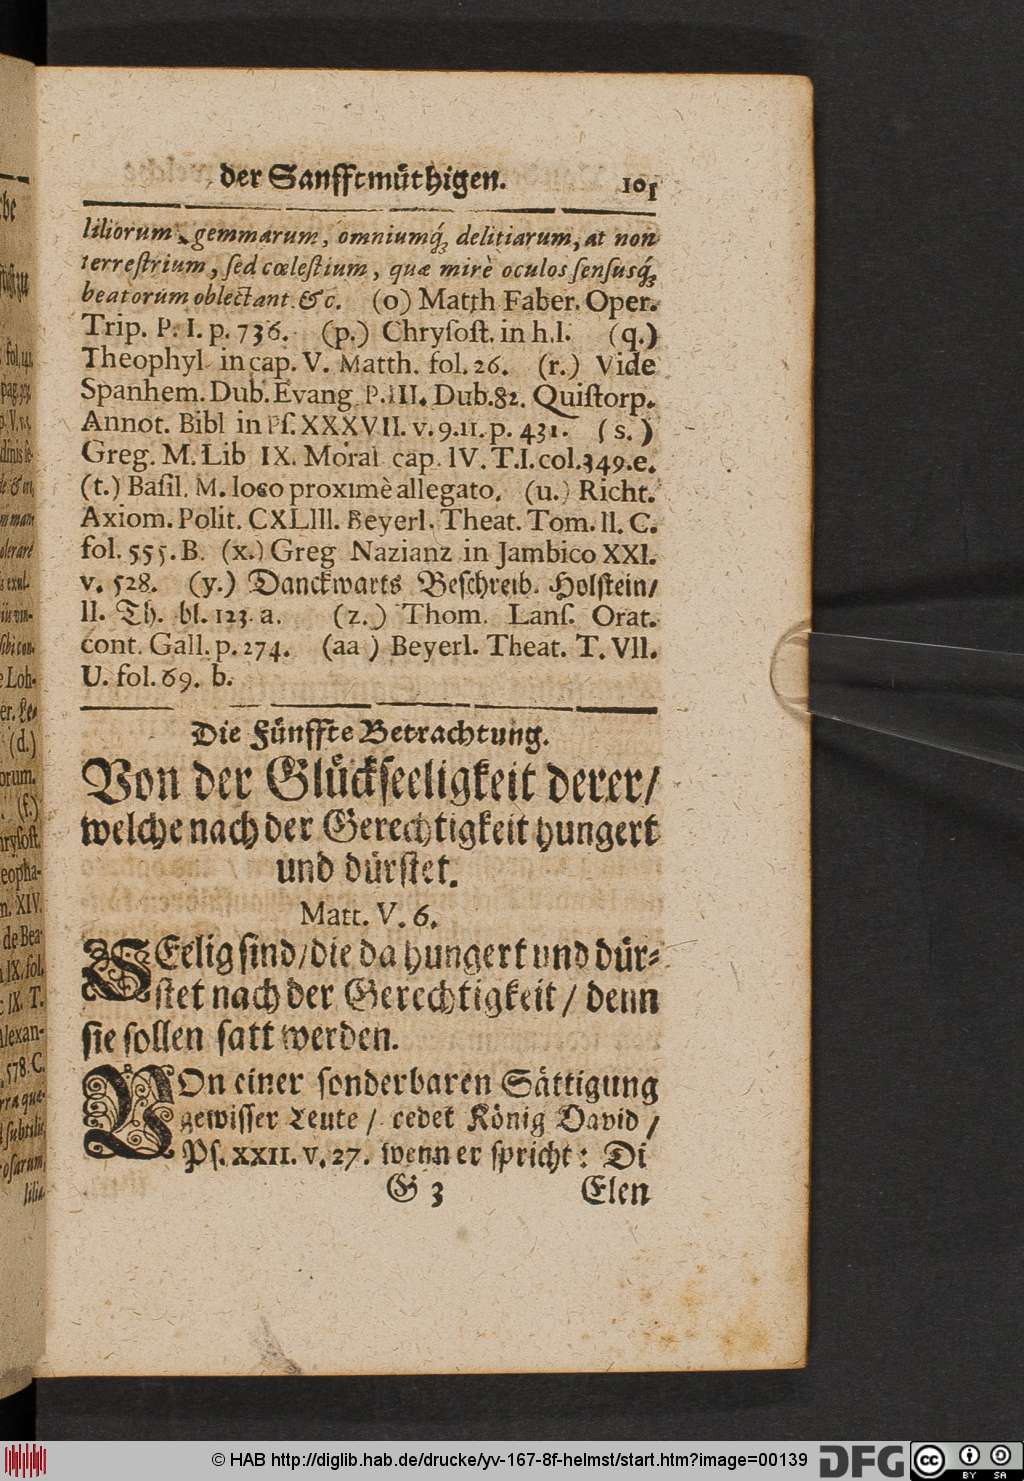 der Sanfftmuͤthigen. 101
liliorum, gemmarum, omniumq́; delitiarum, at non
terreſtrium, ſed cœleſtium, quæ mirè oculos ſenſusq́;
beatorum oblectant. &c. (o) Matth Faber. Oper.
Trip. P. I. p. 736. (p.) Chryſoſt. in h.l. (q.)
Theophyl in cap. V. Matth. fol. 26. (r.) Vide
Spanhem. Dub. Evang P. III. Dub. 82. Quiſtorp.
Annot. Bibl in Pſ. XXXVII. v. 9. 11. p. 431. (s.)
Greg. M. Lib IX. Moral cap. IV. T. I. col. 349. e.
(t.) Baſil. M. loco proximè allegato. (u.) Richt.
Axiom. Polit. CXLIII. Beyerl. Theat. Tom. II. C.
fol. 555. B. (x.) Greg Nazianz in Jambico XXI.
v. 528. (y.) Danckwarts Beſchreib. Holſtein/
II. Th. bl. 123. a. (z.) Thom. Lanſ. Orat.
cont. Gall. p. 274. (aa) Beyerl. Theat. T. VII.
U. fol. 69. b.
Die Fuͤnffte Betrachtung.
Von der Gluͤckſeeligkeit derer/
welche nach der Gerechtigkeit hungert
und duͤrſtet.
Matt. V. 6.
SEelig ſind/die da hungert und duͤr⸗
ſtet nach der Gerechtigkeit / denn
ſie ſollen ſatt werden.
VOn einer ſonderbaren Saͤttigung
gewiſſer Leute / redet Koͤnig David /
Pſ. XXII. v. 27. wenn er ſpricht: Di
G 3 Elen
© HAB http://diglib.hab.de/drucke/yv-167-8f-helmst/start.htm?image=00139 DFG cc BY SA